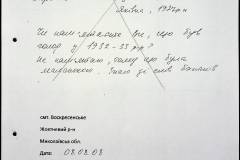 1927 р.н
Чи пам'ятаєте Ви, що був
голод у 1932-33 рр?
Не пам'ятаю, тому що була
маленькою. Знаю зі слів батьків
смт. Воскресенське
Жовтневий р-н
Миколаївська обл.
Дата: 08.02.08